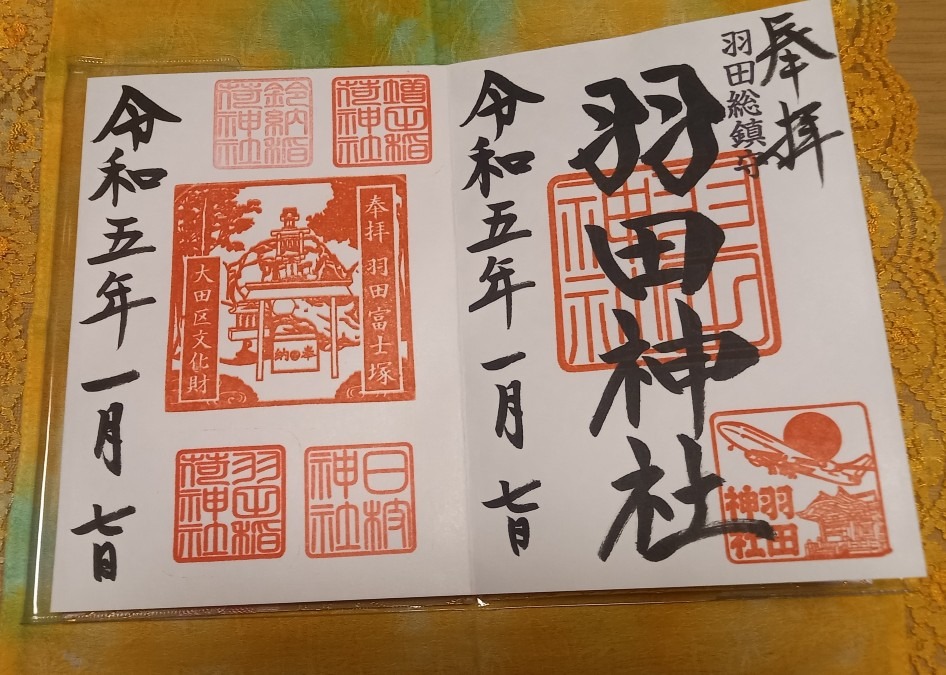 奉拝
羽田総鎮守
羽田神社
羽田
神社
令和五年一月七日
鈴納稲
荷神社
稲
荷神社
奉拝 羽田富士塚
大田区文化財
奉
納
羽田稲
荷神社
日枝
神社
令和五年一月七日